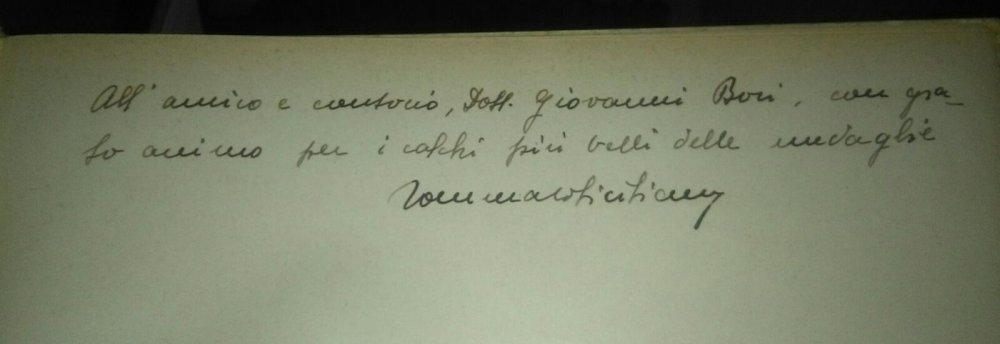 All'amico e consocio, Dott. Giovanni Bori, con gra-
to animo per i calchi più belli delle medaglie